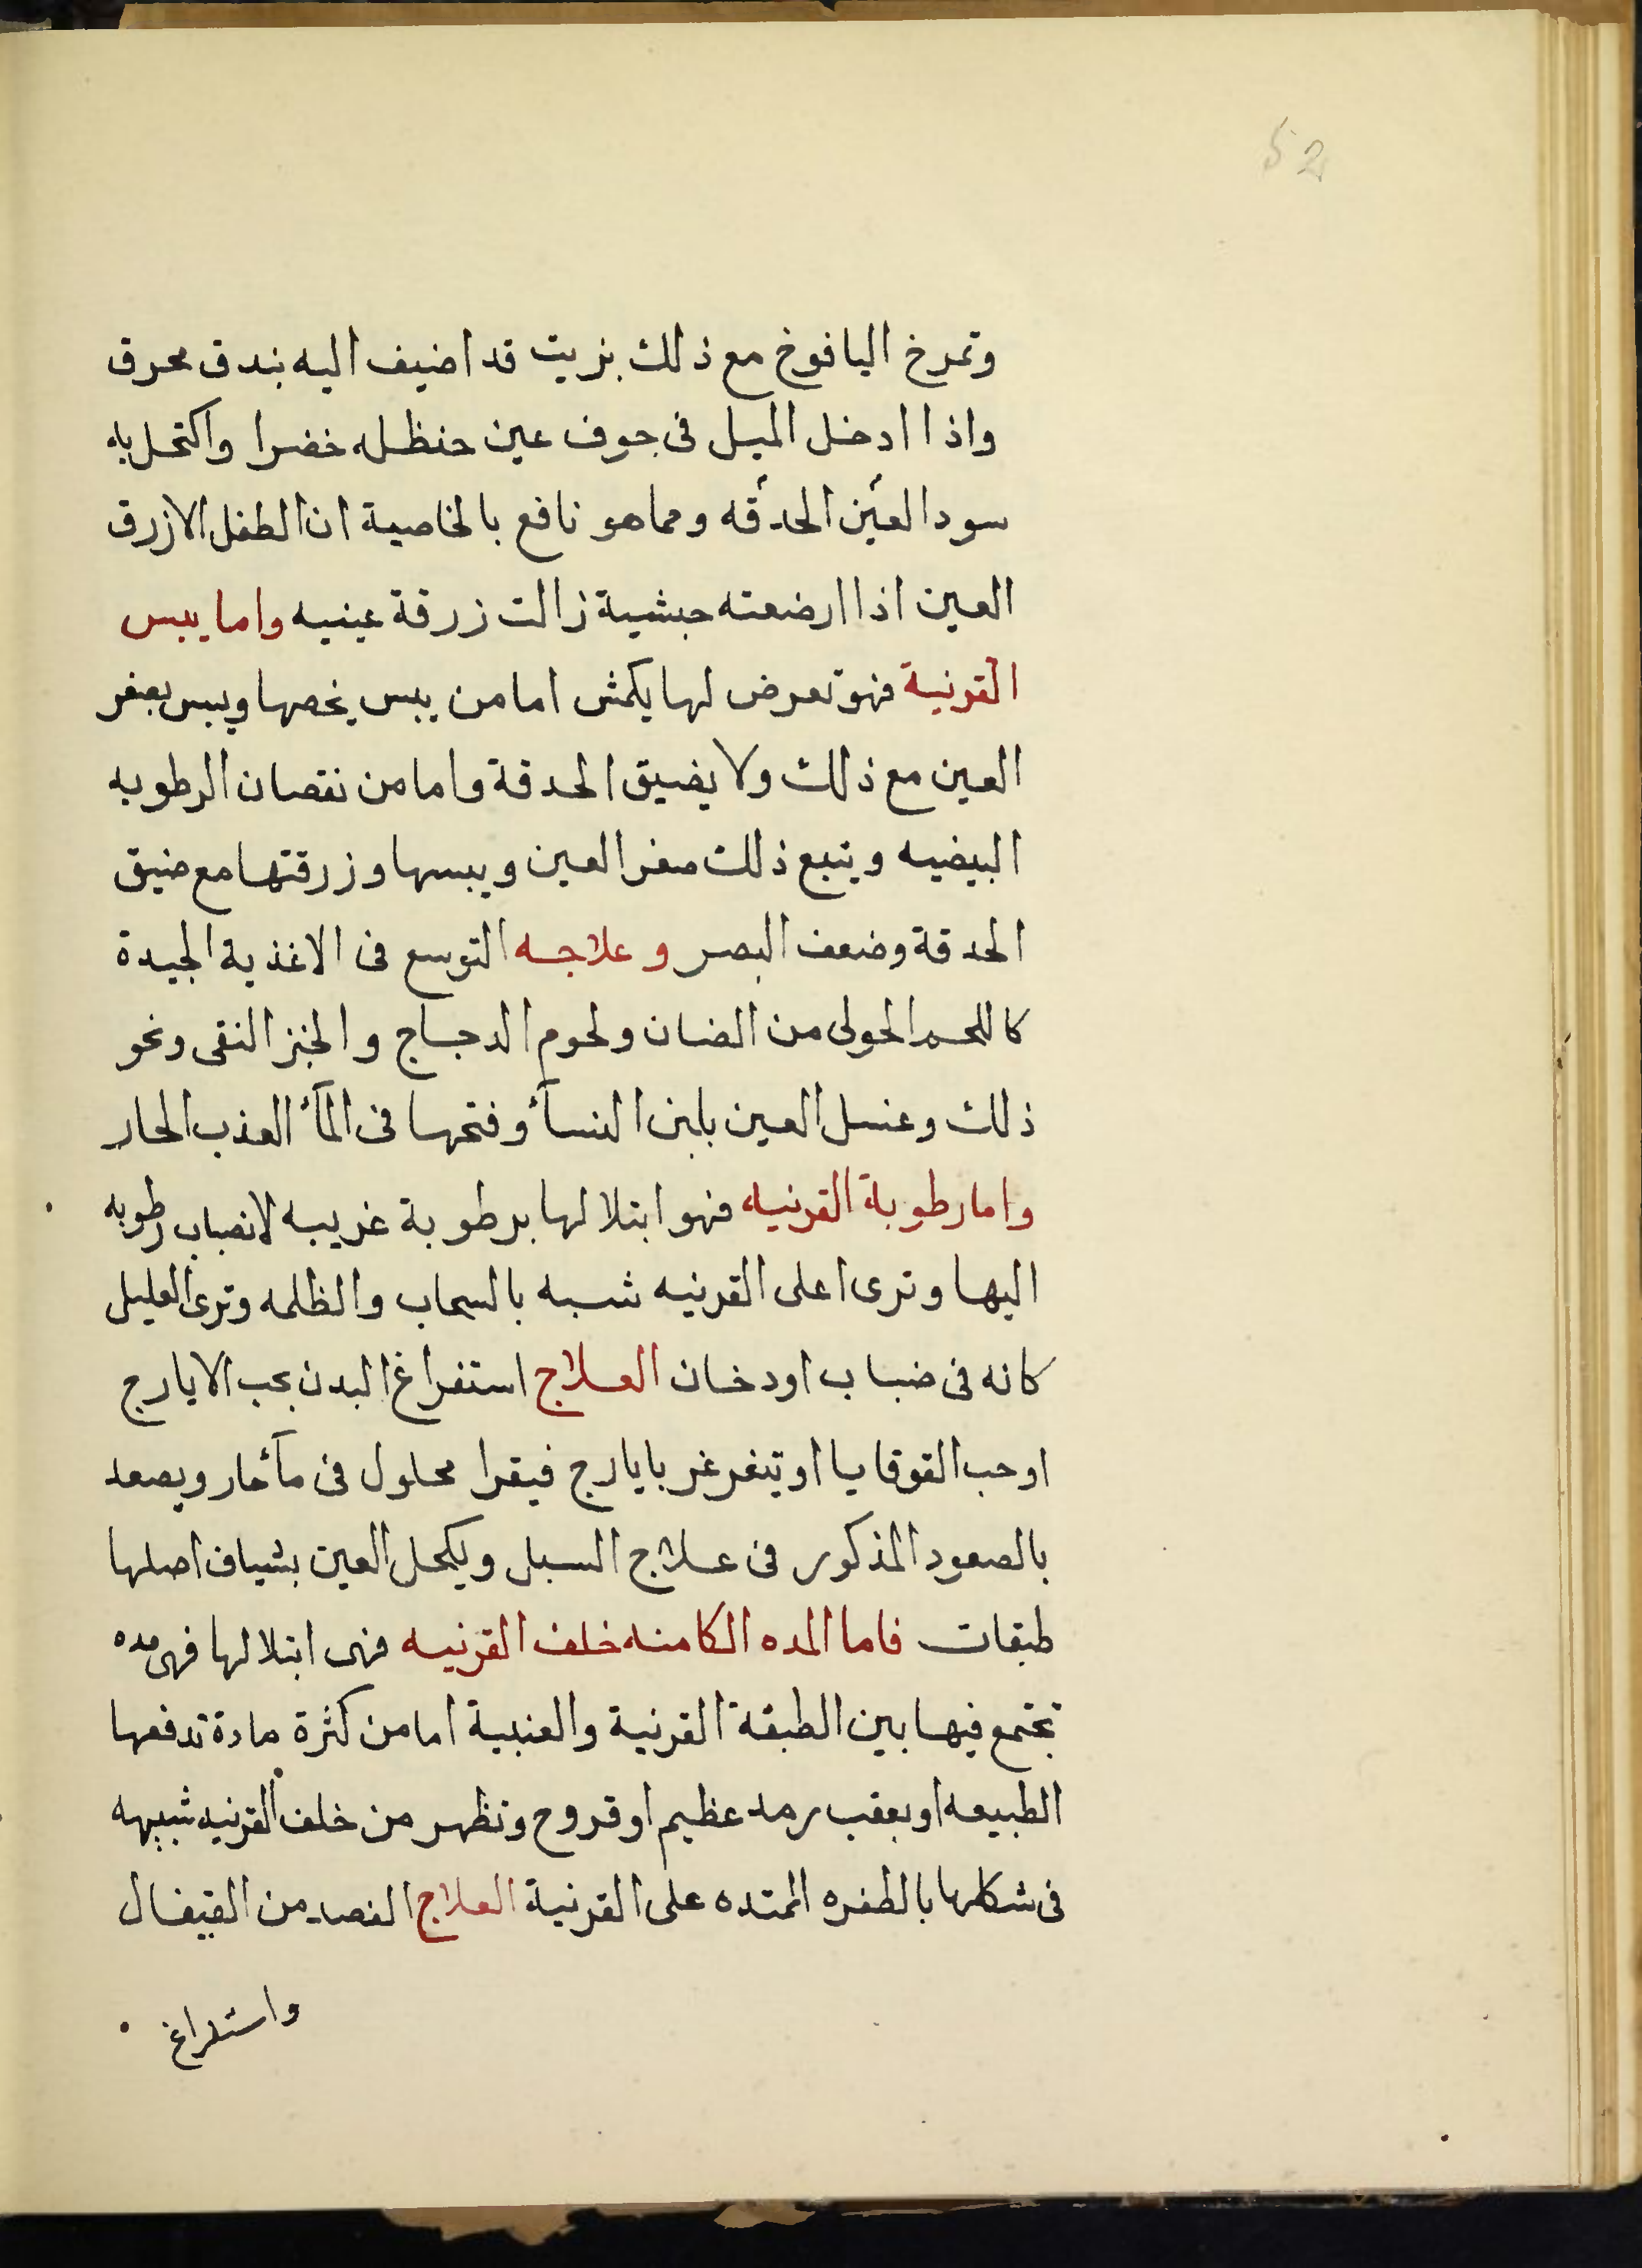 52
وتمرخ اليافوخ مع ذلك بزيت قد اضيف اليه بندق محرق
واذا ادخل الميل فى جوف عين حنظله خضرا واكتحل به
سود العين الحدقه ومما هو نافع بالخاصية ان الطفل الازرق
العين اذا ارضعته حبشية زالت زرقة عينيه واما يبس
القرنية فهو تعرض لها يكمش اما من يبس يخصها ويبس بصغر
العين مع ذلك ولا يضيق الحدقة واما من نقصان الرطوبه
البيضيه ويتبع ذلك صغر العين ويبسها وزرقتها مع ضيق
الحدقة وضعف البصر وعلاجه التوسع فى الاغذية الجيدة
كاللحم الحولى من الضان ولحوم الدجاج والخبز النقى ونحو
ذلك وغسل العين بلبن النسآء وفتحها فى المآء العذب الحار
واما رطوبة القرنيه فهو ابتلالها برطوبة غريبه لانصباب رطوبه
اليها وترى اعلى القرنيه شبه بالسحاب والظلمه وترى العليل
كانه فى ضباب او دخان العلاج استفراغ البدن بحب الايارج
او حب القوقايا او يتغرغر بايارج فيقرا محلول فى مآء حار ويصعد
بالصعود المذكور فى علاج السبل ويكحل العين بشياف اصلها
طبقات فاما المده الكامنه خلف القرنيه فهى ابتلالها فهى مده
تجتمع فيها بين الطبقة القرنية والعنبية اما من كثرة مادة تدفعها
الطبيعه او بعقب رمد عظيم او قروح وتظهر من خلف القرنيه شبيهه
فى شكلها بالظفره الممتده على القرنية العلاج الفصد من القيفال
واستفراغ